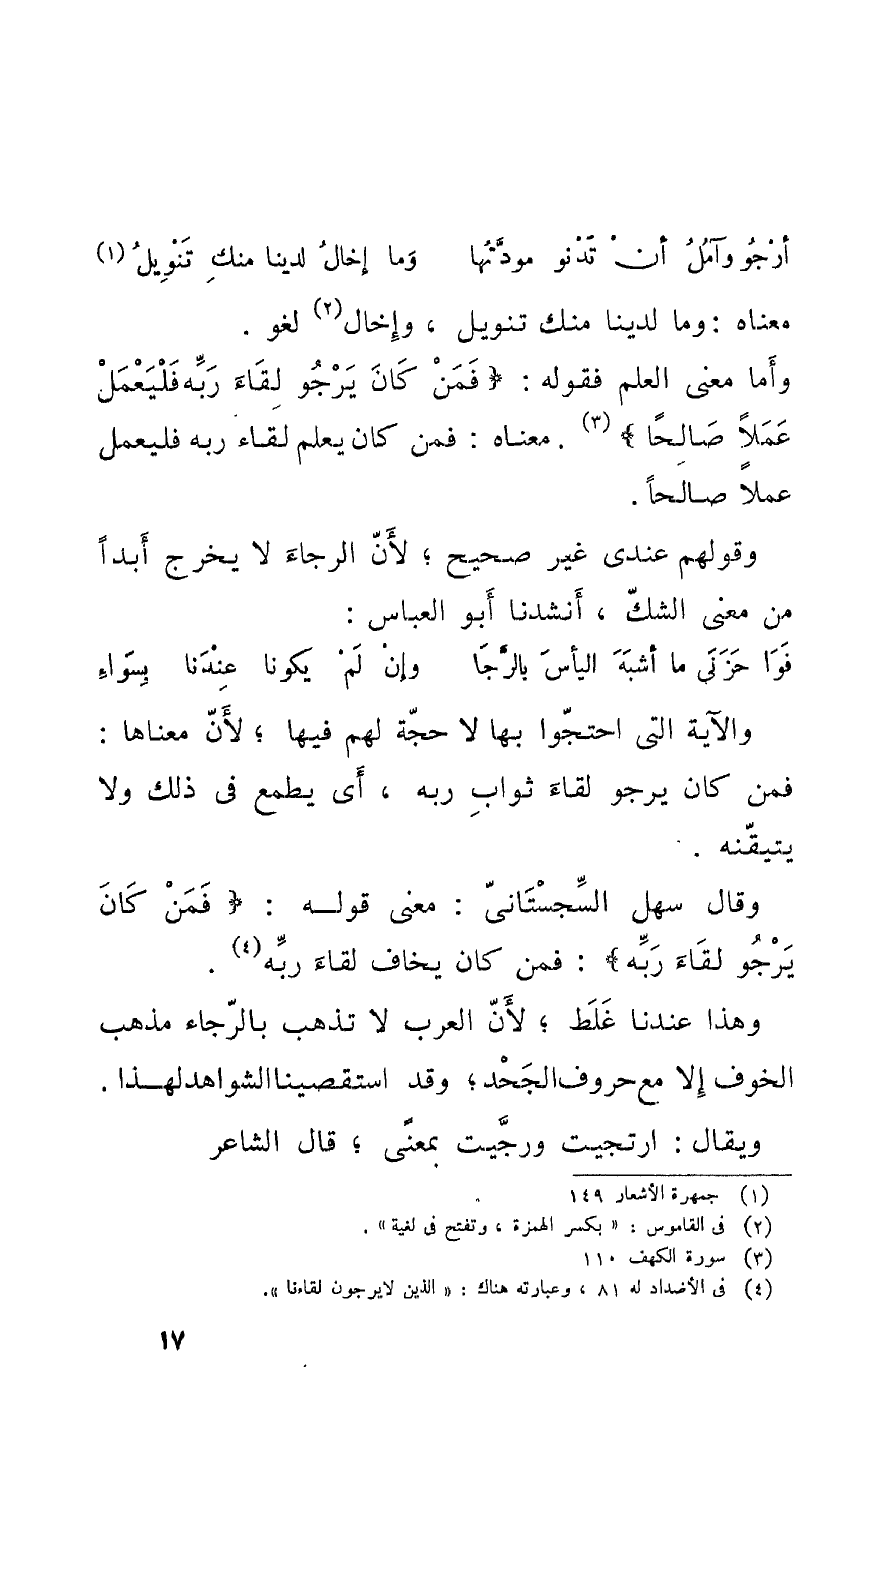 أرْجُو وآمُلُ أنْ تَدْنو مودَّتُها    وَما إخالُ لدينا منكِ تَنْوِيلُ (١)
معناه : وما لدينا منك تنويل ، وإخال (٢) لغو .
وأما معنى العلم فقوله : ﴿ فَمَنْ كَانَ يَرْجُو لِقَاءَ رَبِّه فَلْيَعْمَلْ
عَمَلاً صَالِحًا ﴾ (٣) . معناه : فمن كان يعلم لقاء ربه فليعمل
عملاً صالحاً .
وقولهم عندى غير صحيح ؛ لأَنّ الرجاءَ لا يخرج أَبداً
من معنى الشكّ ، أَنشدنا أَبو العباس :
فَوَا حَزَنَى ما أشبَهَ اليأسَ بالرَّجَا    وإنْ لَمْ يكونا عِنْدَنا بِسَواءِ
والآية التى احتجّوا بها لا حجّة لهم فيها ؛ لأَنّ معناها :
فمن كان يرجو لقاءَ ثوابِ ربه ، أَى يطمع فى ذلك ولا
يتيقّنه .
وقال سهل السِّجِسْتَانىّ : معنى قوله : ﴿ فَمَنْ كَانَ
يَرْجُو لقَاءَ رَبِّه ﴾ : فمن كان يخاف لقاءَ ربِّه (٤) .
وهذا عندنا غَلَط ؛ لأَنّ العرب لا تذهب بالرّجاء مذهب
الخوف إلا مع حروف الجَحْد ؛ وقد استقصينا الشواهد لهذا .
ويقال : ارتجيت ورجَّيت بمعنًى ؛ قال الشاعر
(١) جمهرة الأشعار ١٤٩
(٢) فى القاموس : « بكسر الهمزة ، وتفتح فى لغية » .
(٣) سورة الكهف ١١٠
(٤) فى الأضداد له ٨١ ، وعبارته هناك : « الذين لايرجون لقاءنا ».
١٧